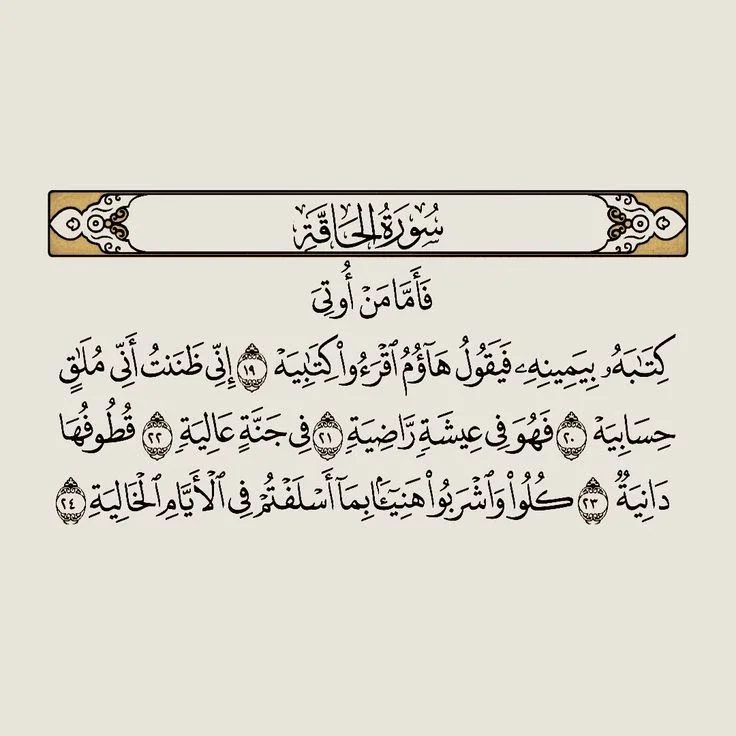 سُورَةُ الحَاقَّةِ
فَأَمَّا مَنۡ أُوتِيَ
كِتَٰبَهُۥ بِيَمِينِهِۦ فَيَقُولُ هَآؤُمُ ٱقۡرَءُواْ كِتَٰبِيَهۡ ١٩ إِنِّي ظَنَنتُ أَنِّي مُلَٰقٍ
حِسَابِيَهۡ ٢٠ فَهُوَ فِي عِيشَةٖ رَّاضِيَةٖ ٢١ فِي جَنَّةٍ عَالِيَةٖ ٢٢ قُطُوفُهَا
دَانِيَةٞ ٢٣ كُلُواْ وَٱشۡرَبُواْ هَنِيٓـَٔۢا بِمَآ أَسۡلَفۡتُمۡ فِي ٱلۡأَيَّامِ ٱلۡخَالِيَةِ ٢٤